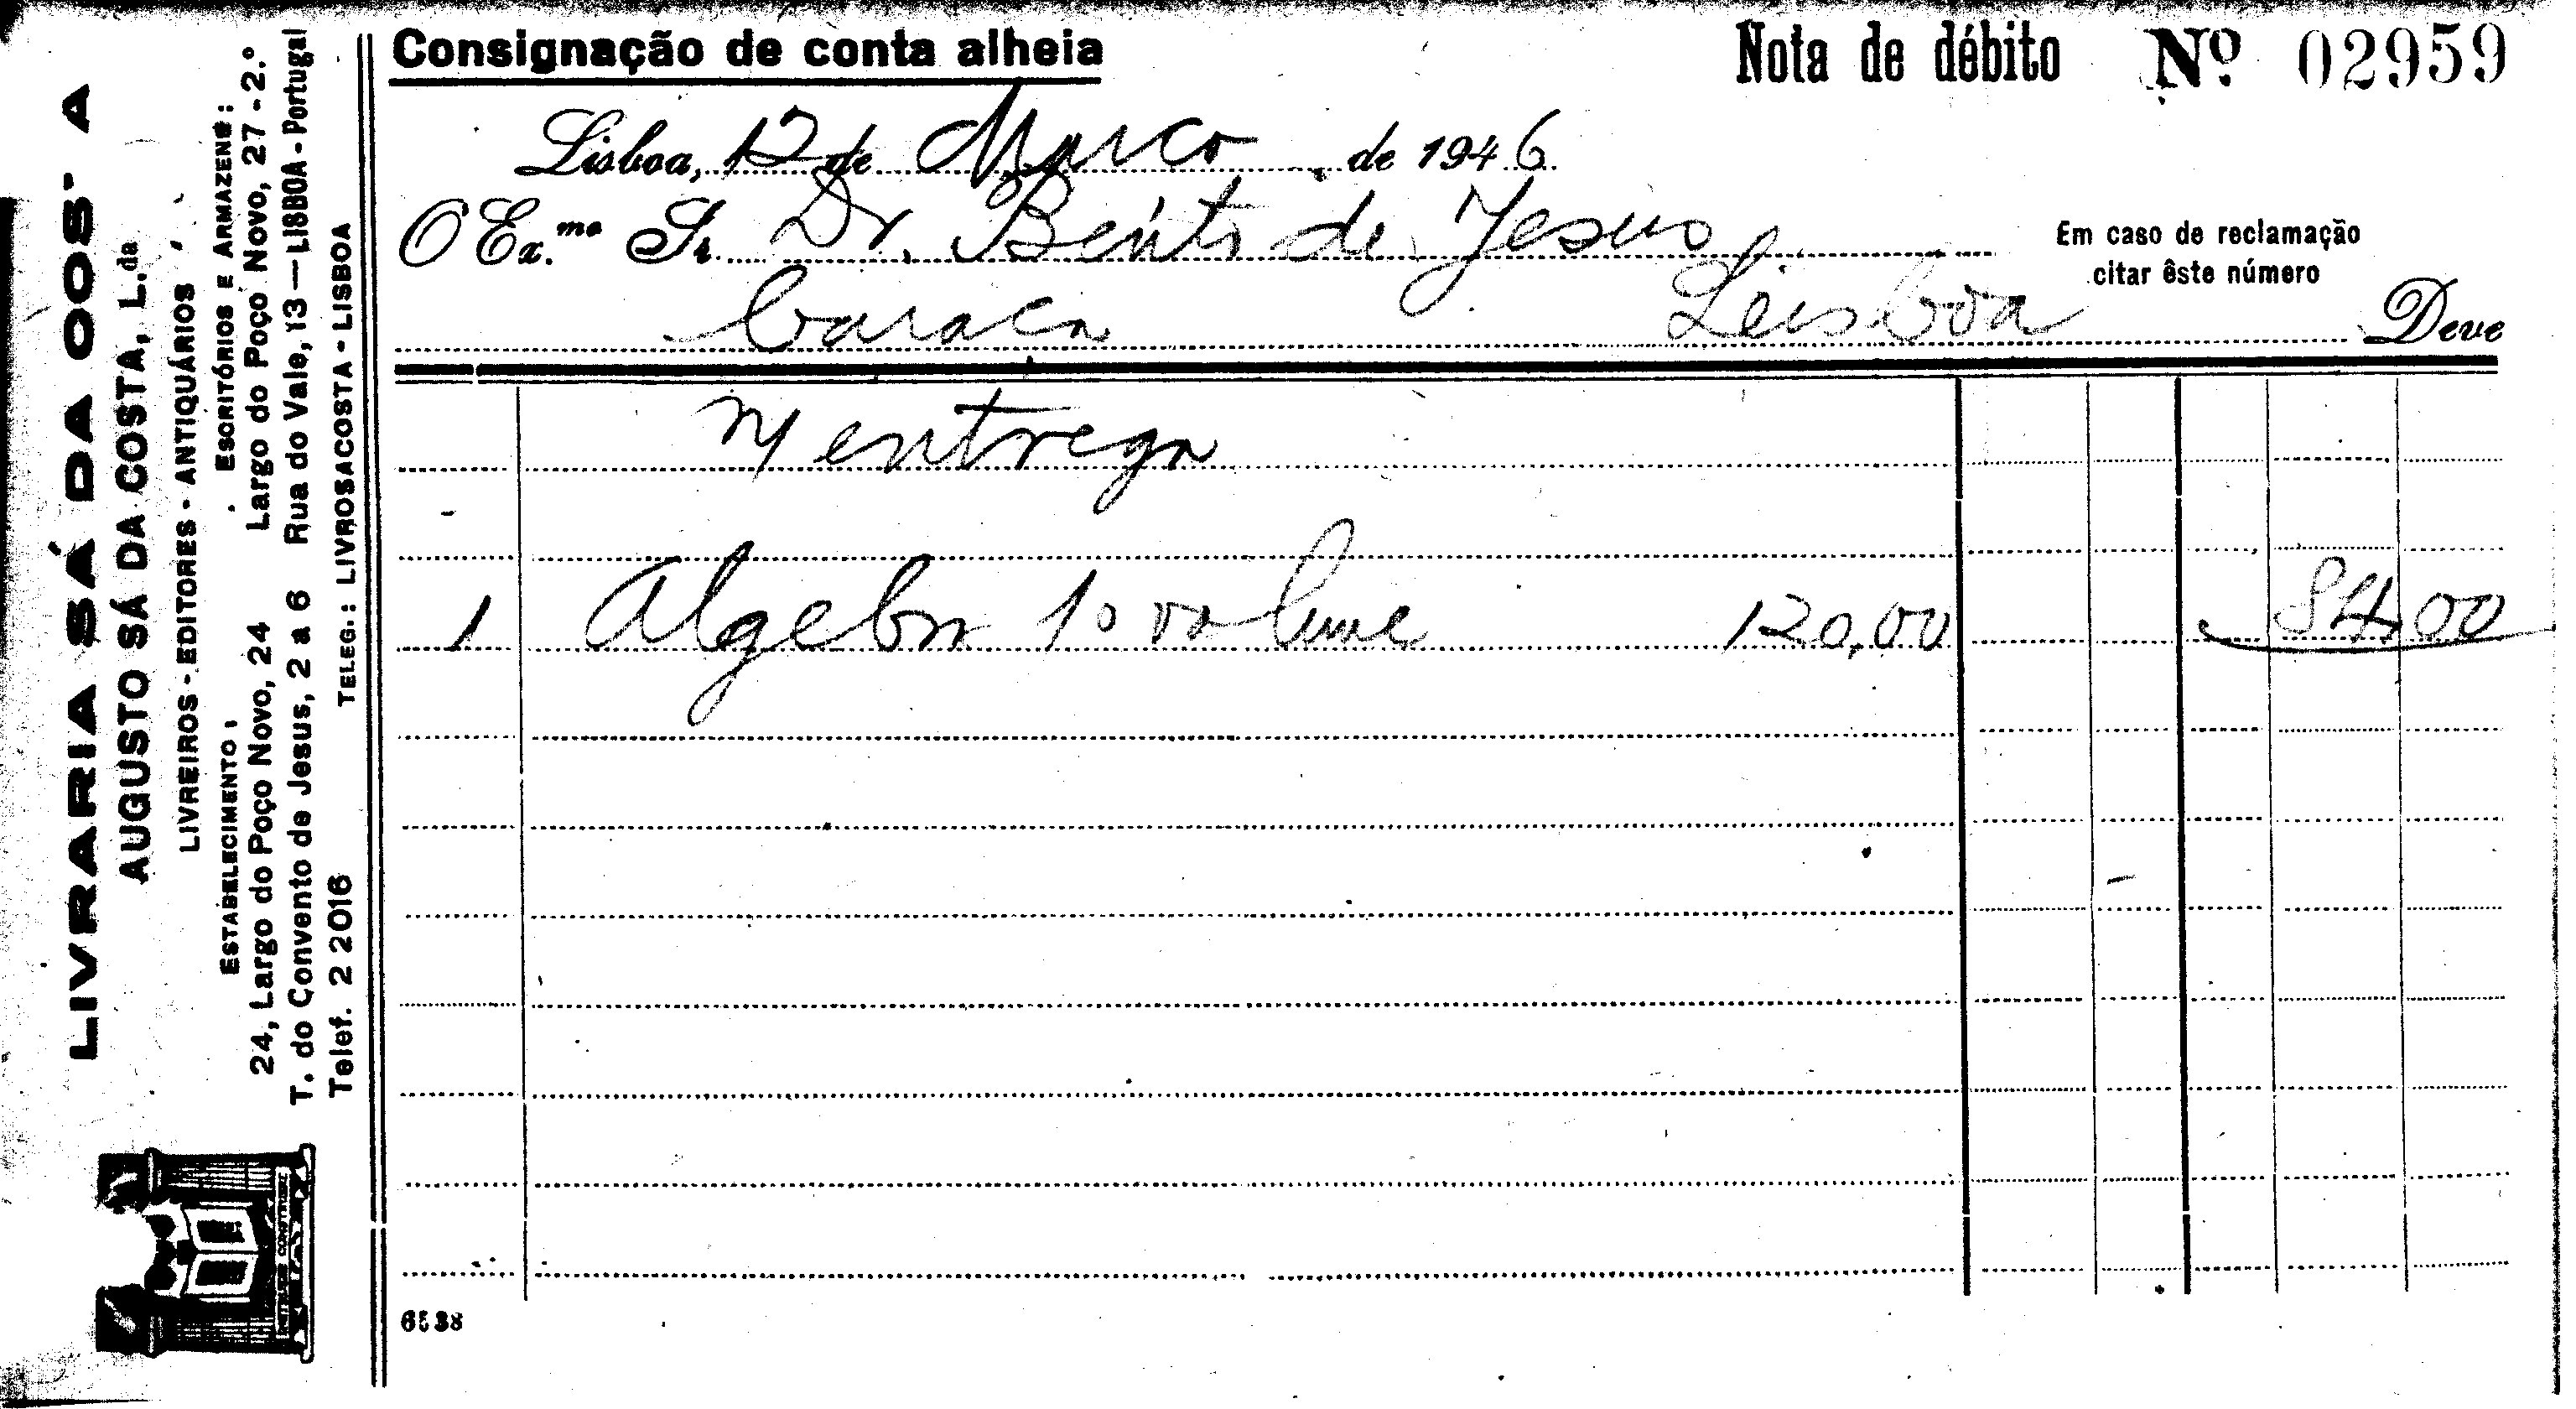 Consignação de conta alheia
Nota de débito Nº 02959
Lisboa, 12 de Março de 1946
O Ex.mo Sr. Dr. Bento de Jesus
Caraça Lisboa
Em caso de reclamação
citar êste número
Deve
n/ entrega
1 Algebra 1º volume 120,00 84,00
LIVRARIA SÁ DA COSTA
AUGUSTO SÁ DA COSTA, L.da
LIVREIROS - EDITORES - ANTIQUÁRIOS
ESTABELECIMENTO: ESCRITÓRIOS E ARMAZENS:
24, Largo do Poço Novo, 24 Largo do Poço Novo, 27-2.º
T. do Convento de Jesus, 2 a 6 Rua do Vale, 13 — LISBOA - Portugal
Telef. 2 2016 TELEG.: LIVROSACOSTA - LISBOA